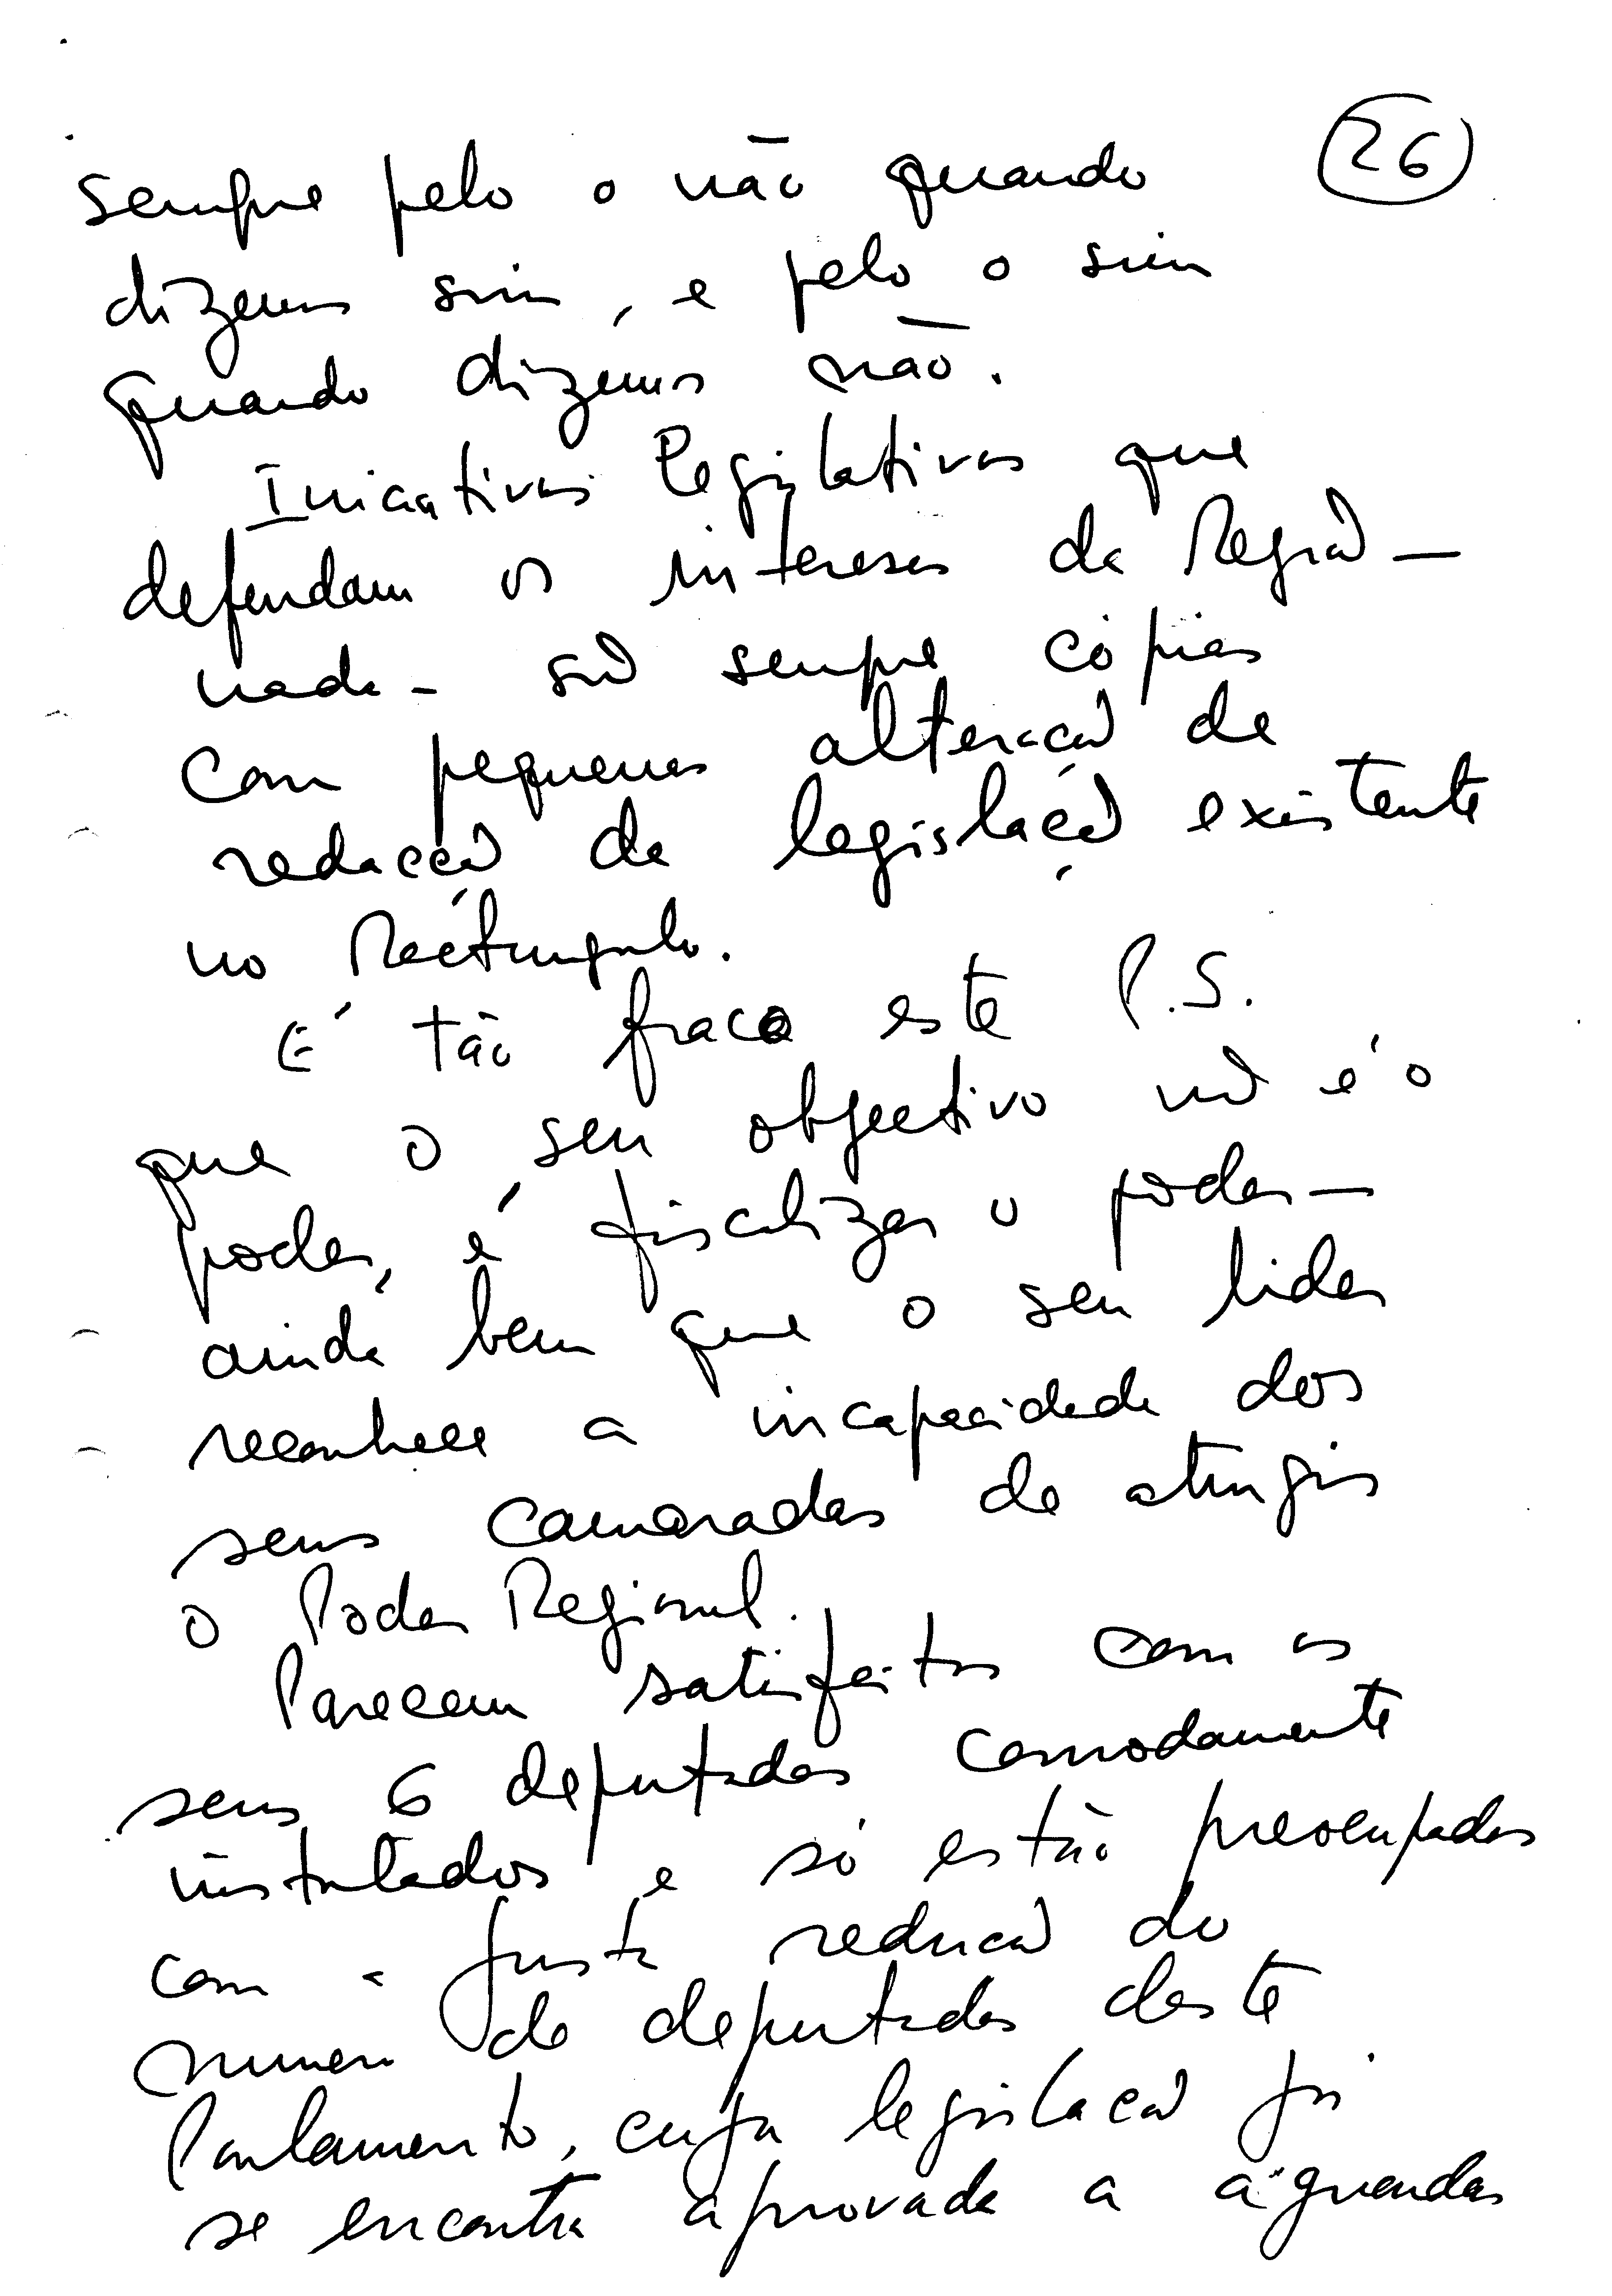 26
sempre pelo o não quando
dizemos sim, e pelo o sim
quando dizemos não.
Iniciativas legislativas que
defendam os interesses da Região —
nada - são sempre cópias
com pequenas alteração de
redacção da legislação existente
no Rectângulo.
É tão fraco este P.S.
que o seu objectivo não é o
poder, é fiscalizar o poder —
ainda bem que o seu lider
reconhece a incapacidade dos
seus camaradas de atingir
o Poder Regional.
Parecem satisfeitos com os
seus 6 deputados comodamente
instalados e só estão preocupados
com a justa redução do
numero de deputados deste
Parlamento, cuja legislação já
se encontra aprovada a aguardar